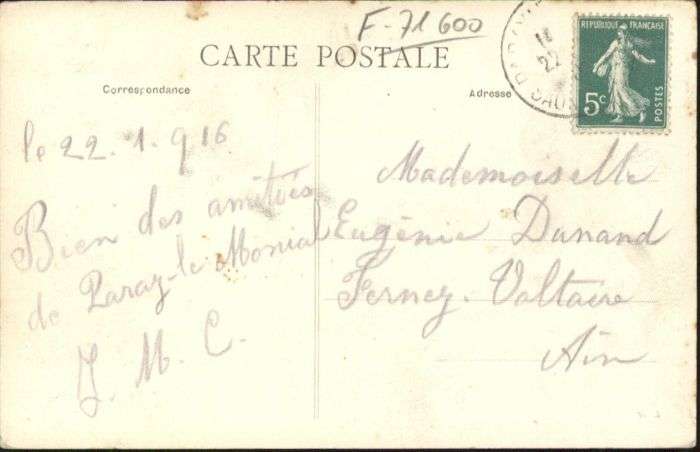 F-71 600
CARTE POSTALE
REPUBLIQUE FRANÇAISE
5c
POSTES
Correspondance
Adresse
le 22.1.916
Bien des amitiés
de Paray-le Monial
J. M. C.
Mademoiselle
Eugénie Dunand
Ferney-Voltaire
Ain